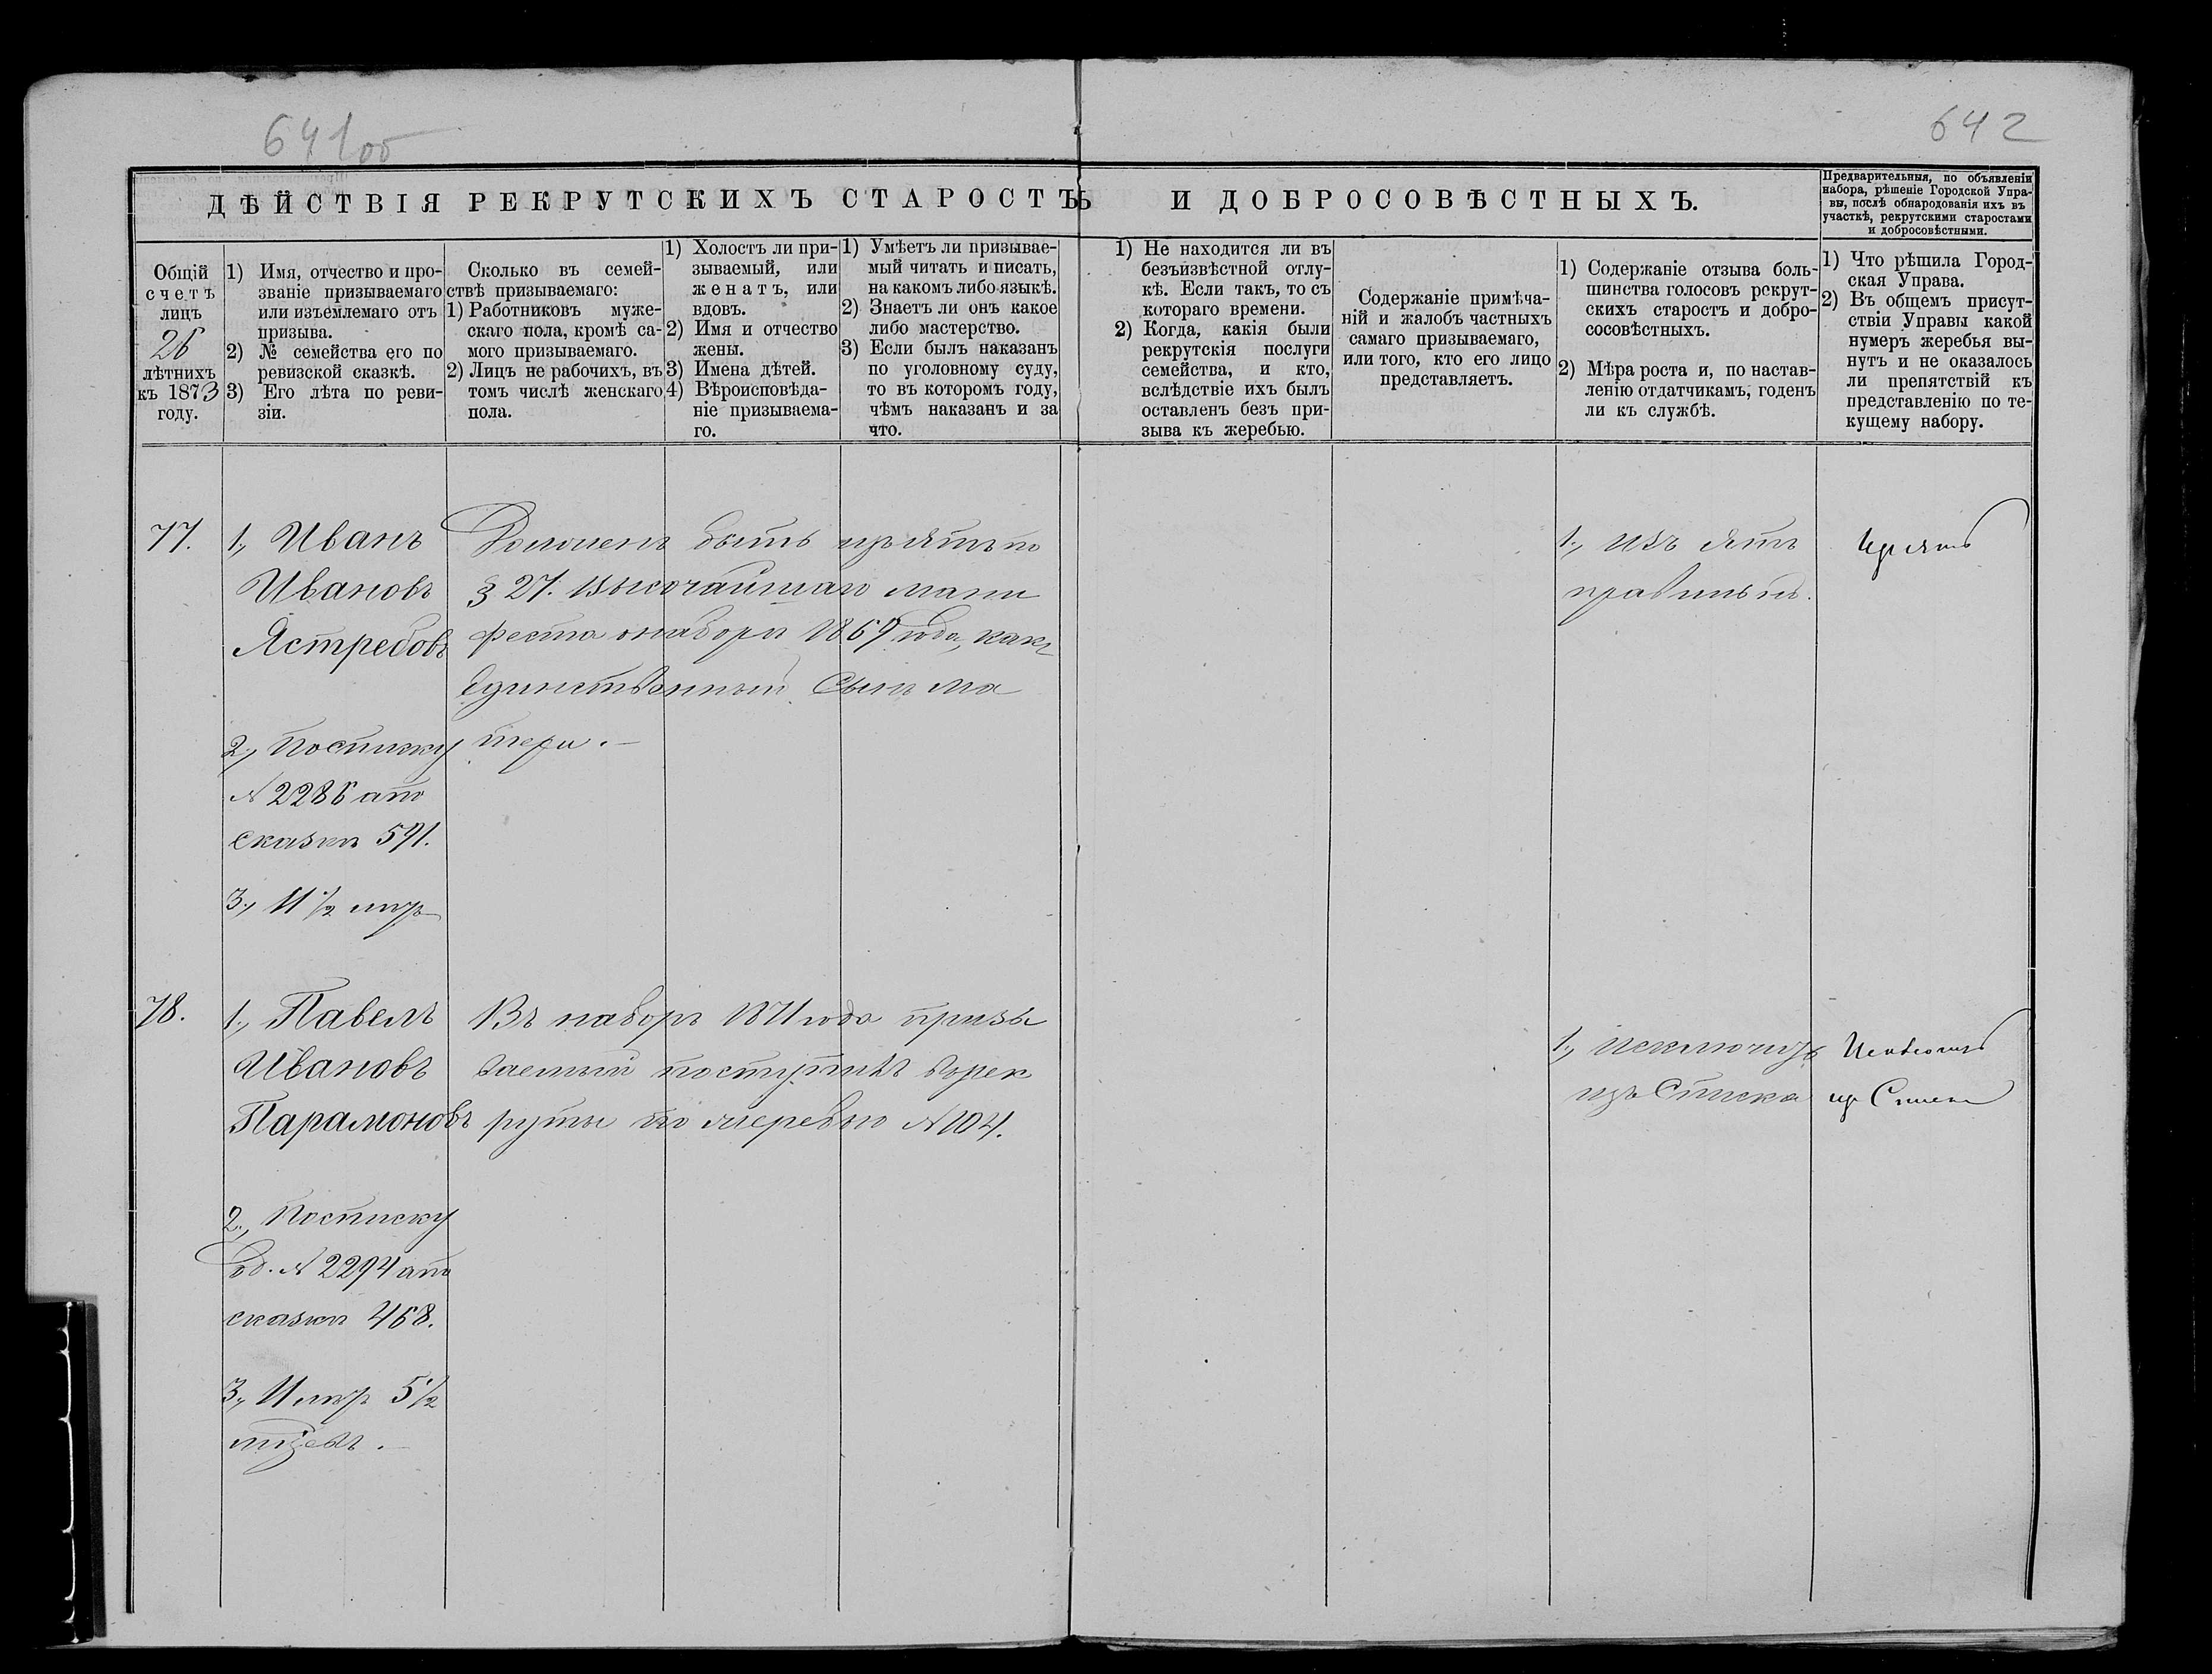 641об
642
ДѢЙСТВІЯ РЕКРУТСКИХЪ СТАРОСТЪ И ДОБРОСОВѢСТНЫХЪ.
Предварительныя, по объявленіи
набора, рѣшеніе Городской Упра-
вы, послѣ обнародованія ихъ въ
участкѣ, рекрутскими старостами
и добросовѣстными.
Общій
счетъ
лицъ
26
лѣтнихъ
къ 1873
году.
1) Имя, отчество и про-
званіе призываемаго
или изъемлемаго отъ
призыва.
2) № семейства его по
ревизской сказкѣ.
3) Его лѣта по реви-
зіи.
Сколько въ семей-
ствѣ призываемаго:
1) Работниковъ муже-
скаго пола, кромѣ са-
мого призываемаго.
2) Лицъ не рабочихъ, въ
томъ числѣ женскаго
пола.
1) Холостъ ли при-
зываемый, или
женатъ, или
вдовъ.
2) Имя и отчество
жены.
3) Имена дѣтей.
4) Вѣроисповѣда-
ніе призываема-
го.
1) Умѣетъ ли призывае-
мый читать и писать,
на какомъ либо языкѣ.
2) Знаетъ ли онъ какое
либо мастерство.
3) Если былъ наказанъ
по уголовному суду,
то въ которомъ году,
чѣмъ наказанъ и за
что.
1) Не находится ли въ
безъизвѣстной отлу-
кѣ. Если такъ, то съ
котораго времени.
2) Когда, какія были
рекрутскія послуги
семейства, и кто,
вслѣдствіе ихъ былъ
оставленъ безъ при-
зыва къ жеребью.
Содержаніе примѣча-
ній и жалобъ частныхъ
самаго призываемаго,
или того, кто его лицо
представляетъ.
1) Содержаніе отзыва боль-
шинства голосовъ рекрут-
скихъ старостъ и добро-
сосовѣстныхъ.
2) Мѣра роста и, по настав-
ленію отдатчикамъ, годенъ
ли къ службѣ.
1) Что рѣшила Город-
ская Управа.
2) Въ общемъ присут-
ствіи Управы какой
нумеръ жеребья вы-
нутъ и не оказалось
ли препятствій къ
представленію по те-
кущему набору.
77.
1., Иванъ
Ивановъ
Ястребовъ
2., По списку
№ 2286 а по
сказкѣ 591.
3., 11 1/2 мѣс
Долженъ быть изъятъ по
§ 27. Высочайшаго мани
феста о наборѣ 1869 года, какъ
единственный сынъ ма
тери.
1., Изъятъ
правильно.
Изъятъ
78.
1., Павелъ
Ивановъ
Парамоновъ
2., По списку
од. № 2294 а по
сказкѣ 468.
Въ наборъ 1871 года призы
ваемый поступилъ въ рек
руты по жеребью № 104.
1., Исключить
изъ списка
изъ Списка